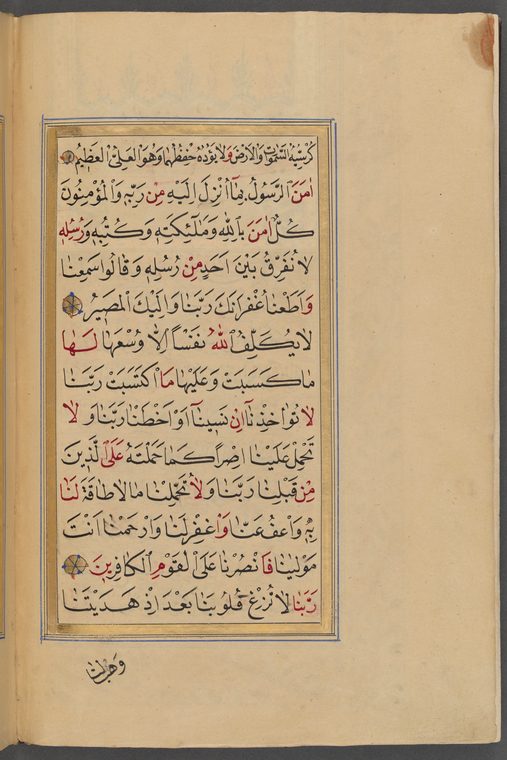 كُرْسِيُّهُ السَّمٰوَاتِ وَالْاَرْضَ وَلَا يَؤُدُهُ حِفْظُهُمَا وَهُوَ الْعَلِيُّ الْعَظِيمُ
اٰمَنَ الرَّسُولُ بِمَٓا اُنْزِلَ اِلَيْهِ مِنْ رَبِّهِ وَالْمُؤْمِنُونَ
كُلٌّ اٰمَنَ بِاللّٰهِ وَمَلٰٓئِكَتِهِ وَكُتُبِهِ وَرُسُلِهِ
لَا نُفَرِّقُ بَيْنَ اَحَدٍ مِنْ رُسُلِهِ وَقَالُوا سَمِعْنَا
وَاَطَعْنَا غُفْرَانَكَ رَبَّنَا وَاِلَيْكَ الْمَصِيرُ
لَا يُكَلِّفُ اللّٰهُ نَفْسًا اِلَّا وُسْعَهَا لَهَا
مَا كَسَبَتْ وَعَلَيْهَا مَا اكْتَسَبَتْ رَبَّنَا
لَا تُؤَاخِذْنَٓا اِنْ نَسِينَٓا اَوْ اَخْطَئْنَا رَبَّنَا وَلَا
تَحْمِلْ عَلَيْنَا اِصْرًا كَمَا حَمَلْتَهُ عَلَى الَّذِينَ
مِنْ قَبْلِنَا رَبَّنَا وَلَا تُحَمِّلْنَا مَا لَا طَاقَةَ لَنَا
بِهِ وَاعْفُ عَنَّا وَاغْفِرْ لَنَا وَارْحَمْنَا اَنْتَ
مَوْلٰينَا فَانْصُرْنَا عَلَى الْقَوْمِ الْكَافِرِينَ
رَبَّنَا لَا تُزِغْ قُلُوبَنَا بَعْدَ اِذْ هَدَيْتَنَا
وَهَبْ لَنَا